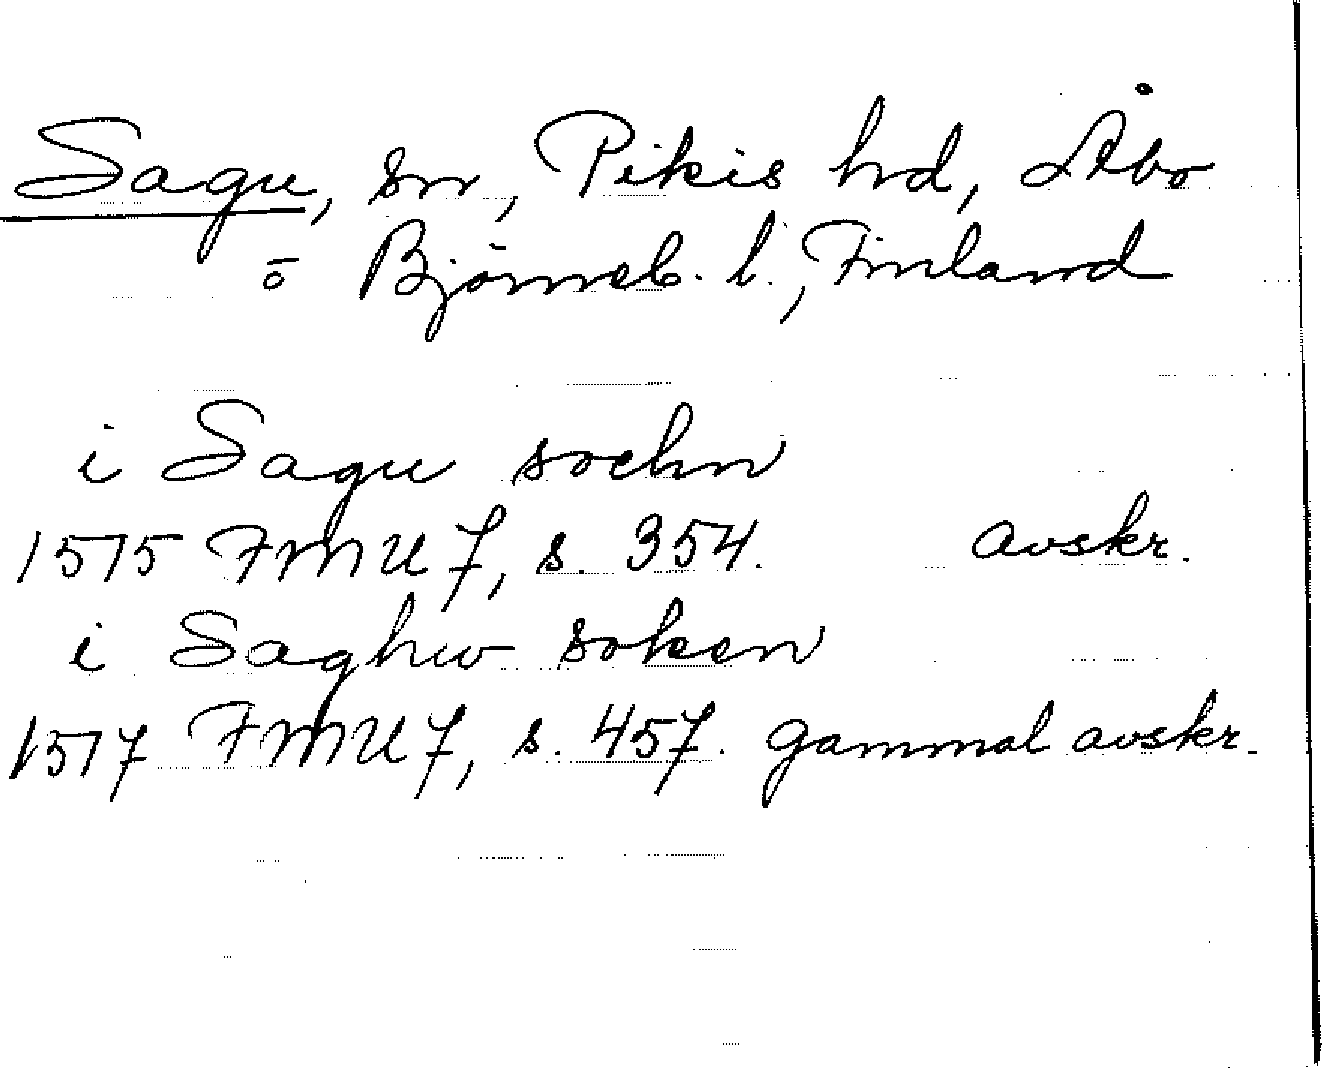 Sagu, sn, Pikis hd, Åbo
o Björneb. l., Finland
i Sagu sochn
1515 FMU 7, s. 354. avskr.
i Saghw soken
1517 FMU 7, s. 457. gammal avskr.